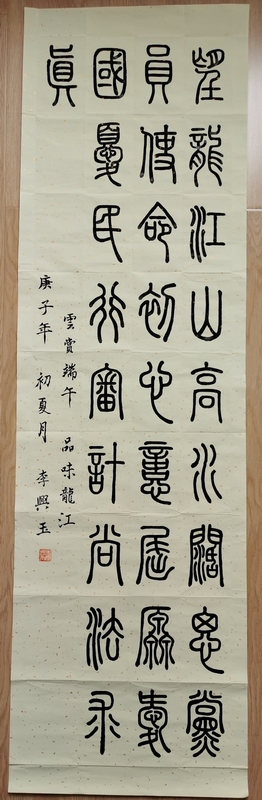 望龍江山高水闊思黨
員使命初心憶屈原愛
國憂民行審計尚法求
眞
雲賞端午 品味龍江
庚子年 初夏月 李興玉